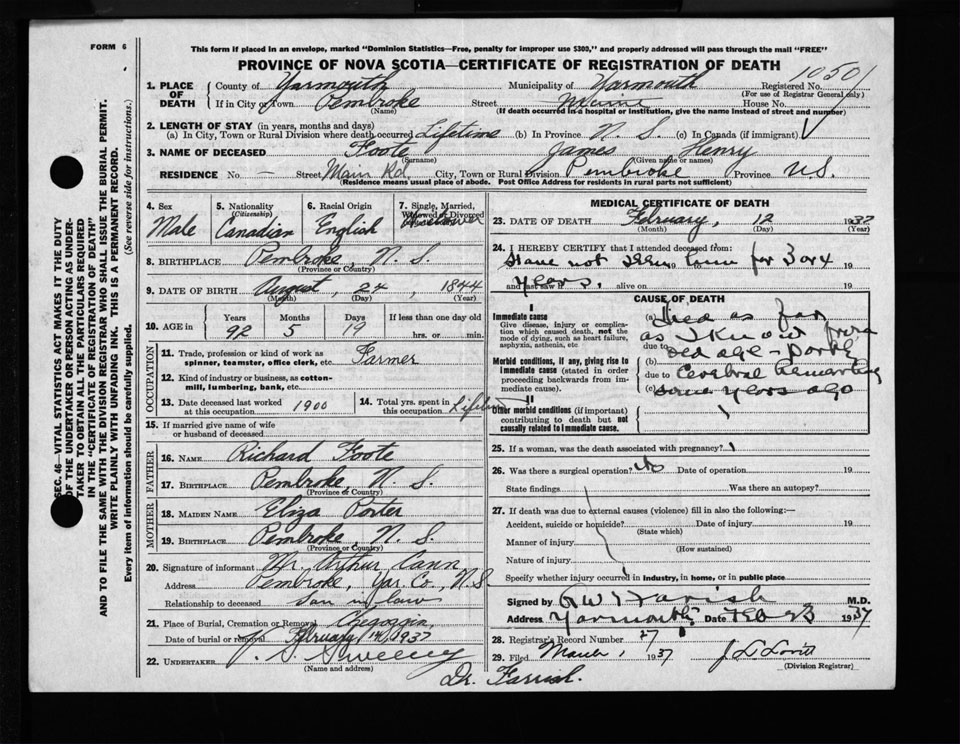 FORM 6
This form if placed in an envelope, marked "Dominion Statistics—Free, penalty for improper use $300," and properly addressed will pass through the mail "FREE"
PROVINCE OF NOVA SCOTIA—CERTIFICATE OF REGISTRATION OF DEATH
SEC. 46—VITAL STATISTICS ACT MAKES IT THE DUTY
OF THE UNDERTAKER OR PERSON ACTING AS UNDER-
TAKER TO OBTAIN ALL THE PARTICULARS REQUIRED
IN THE "CERTIFICATE OF REGISTRATION OF DEATH"
AND TO FILE THE SAME WITH THE DIVISION REGISTRAR WHO SHALL ISSUE THE BURIAL PERMIT.
WRITE PLAINLY WITH UNFADING INK. THIS IS A PERMANENT RECORD.
Every item of information should be carefully supplied. (See reverse side for instructions.)
1. PLACE OF DEATH
County of Yarmouth Municipality of Yarmouth Registered No. 10501
(For use of Registrar General only)
If in City or Town Pembroke Street House No.
(Name) (If death occurred in a hospital or institution, give the name instead of street and number)
2. LENGTH OF STAY (in years, months and days)
(a) In City, Town or Rural Division where death occurred Lifetime (b) In Province N. S. (c) In Canada (if immigrant)
3. NAME OF DECEASED Foote James Henry
(Surname) (Given name or names)
RESIDENCE No. — Street Main Rd. City, Town or Rural Division Pembroke Province N.S.
(Residence means usual place of abode. Post Office Address for residents in rural parts not sufficient)
4. Sex Male
5. Nationality (Citizenship) Canadian
6. Racial Origin English
7. Single, Married, Widowed or Divorced Widower
8. BIRTHPLACE Pembroke, N. S.
(Province or Country)
9. DATE OF BIRTH August, 24, 1844
(Month) (Day) (Year)
10. AGE in Years Months Days If less than one day
92 5 19 hrs. or min.
OCCUPATION
11. Trade, profession or kind of work as spinner, teamster, office clerk, etc. Farmer
12. Kind of industry or business, as cotton-mill, lumbering, bank, etc.
13. Date deceased last worked at this occupation 1900
14. Total yrs. spent in this occupation Lifetime
15. If married give name of wife or husband of deceased
FATHER
16. NAME Richard Foote
17. BIRTHPLACE Pembroke, N. S.
(Province or Country)
MOTHER
18. MAIDEN NAME Eliza Porter
19. BIRTHPLACE Pembroke, N. S.
(Province or Country)
20. Signature of informant Mr. Arthur Cann
Address Pembroke, Yar. Co., N.S.
Relationship to deceased Son in law
21. Place of Burial, Cremation or Removal Chegoggin
Date of burial or removal February 14 1937
22. UNDERTAKER J. S. Sweeny
(Name and address)
Dr. Farrish.
MEDICAL CERTIFICATE OF DEATH
23. DATE OF DEATH February, 12 1937
(Month) (Day) (Year)
24. I HEREBY CERTIFY that I attended deceased from:
Have not seen him for 3 or 4 19
and last saw h years. alive on 19
CAUSE OF DEATH
Immediate cause
Give disease, injury or complication which caused death, not the mode of dying, such as heart failure, asphyxia, asthenia, etc
Morbid conditions, if any, giving rise to immediate cause (stated in order proceeding backwards from immediate cause).
II
Other morbid conditions (if important) contributing to death but not causally related to immediate cause.
(a) Died as far
as I know from
due to old age – partly
(b)
due to Cerebral hemorrhage
(c) some years ago
25. If a woman, was the death associated with pregnancy?
26. Was there a surgical operation? No Date of operation 19
State findings Was there an autopsy?
27. If death was due to external causes (violence) fill in also the following:—
Accident, suicide or homicide? Date of injury 19
(State which)
Manner of injury
(How sustained)
Nature of injury
Specify whether injury occurred in industry, in home, or in public place
Signed by G W T Farish M.D.
Address Yarmouth Date Feb 23 1937
28. Registrar's Record Number 27
29. Filed March 1 1937 J L Lovitt
(Division Registrar)